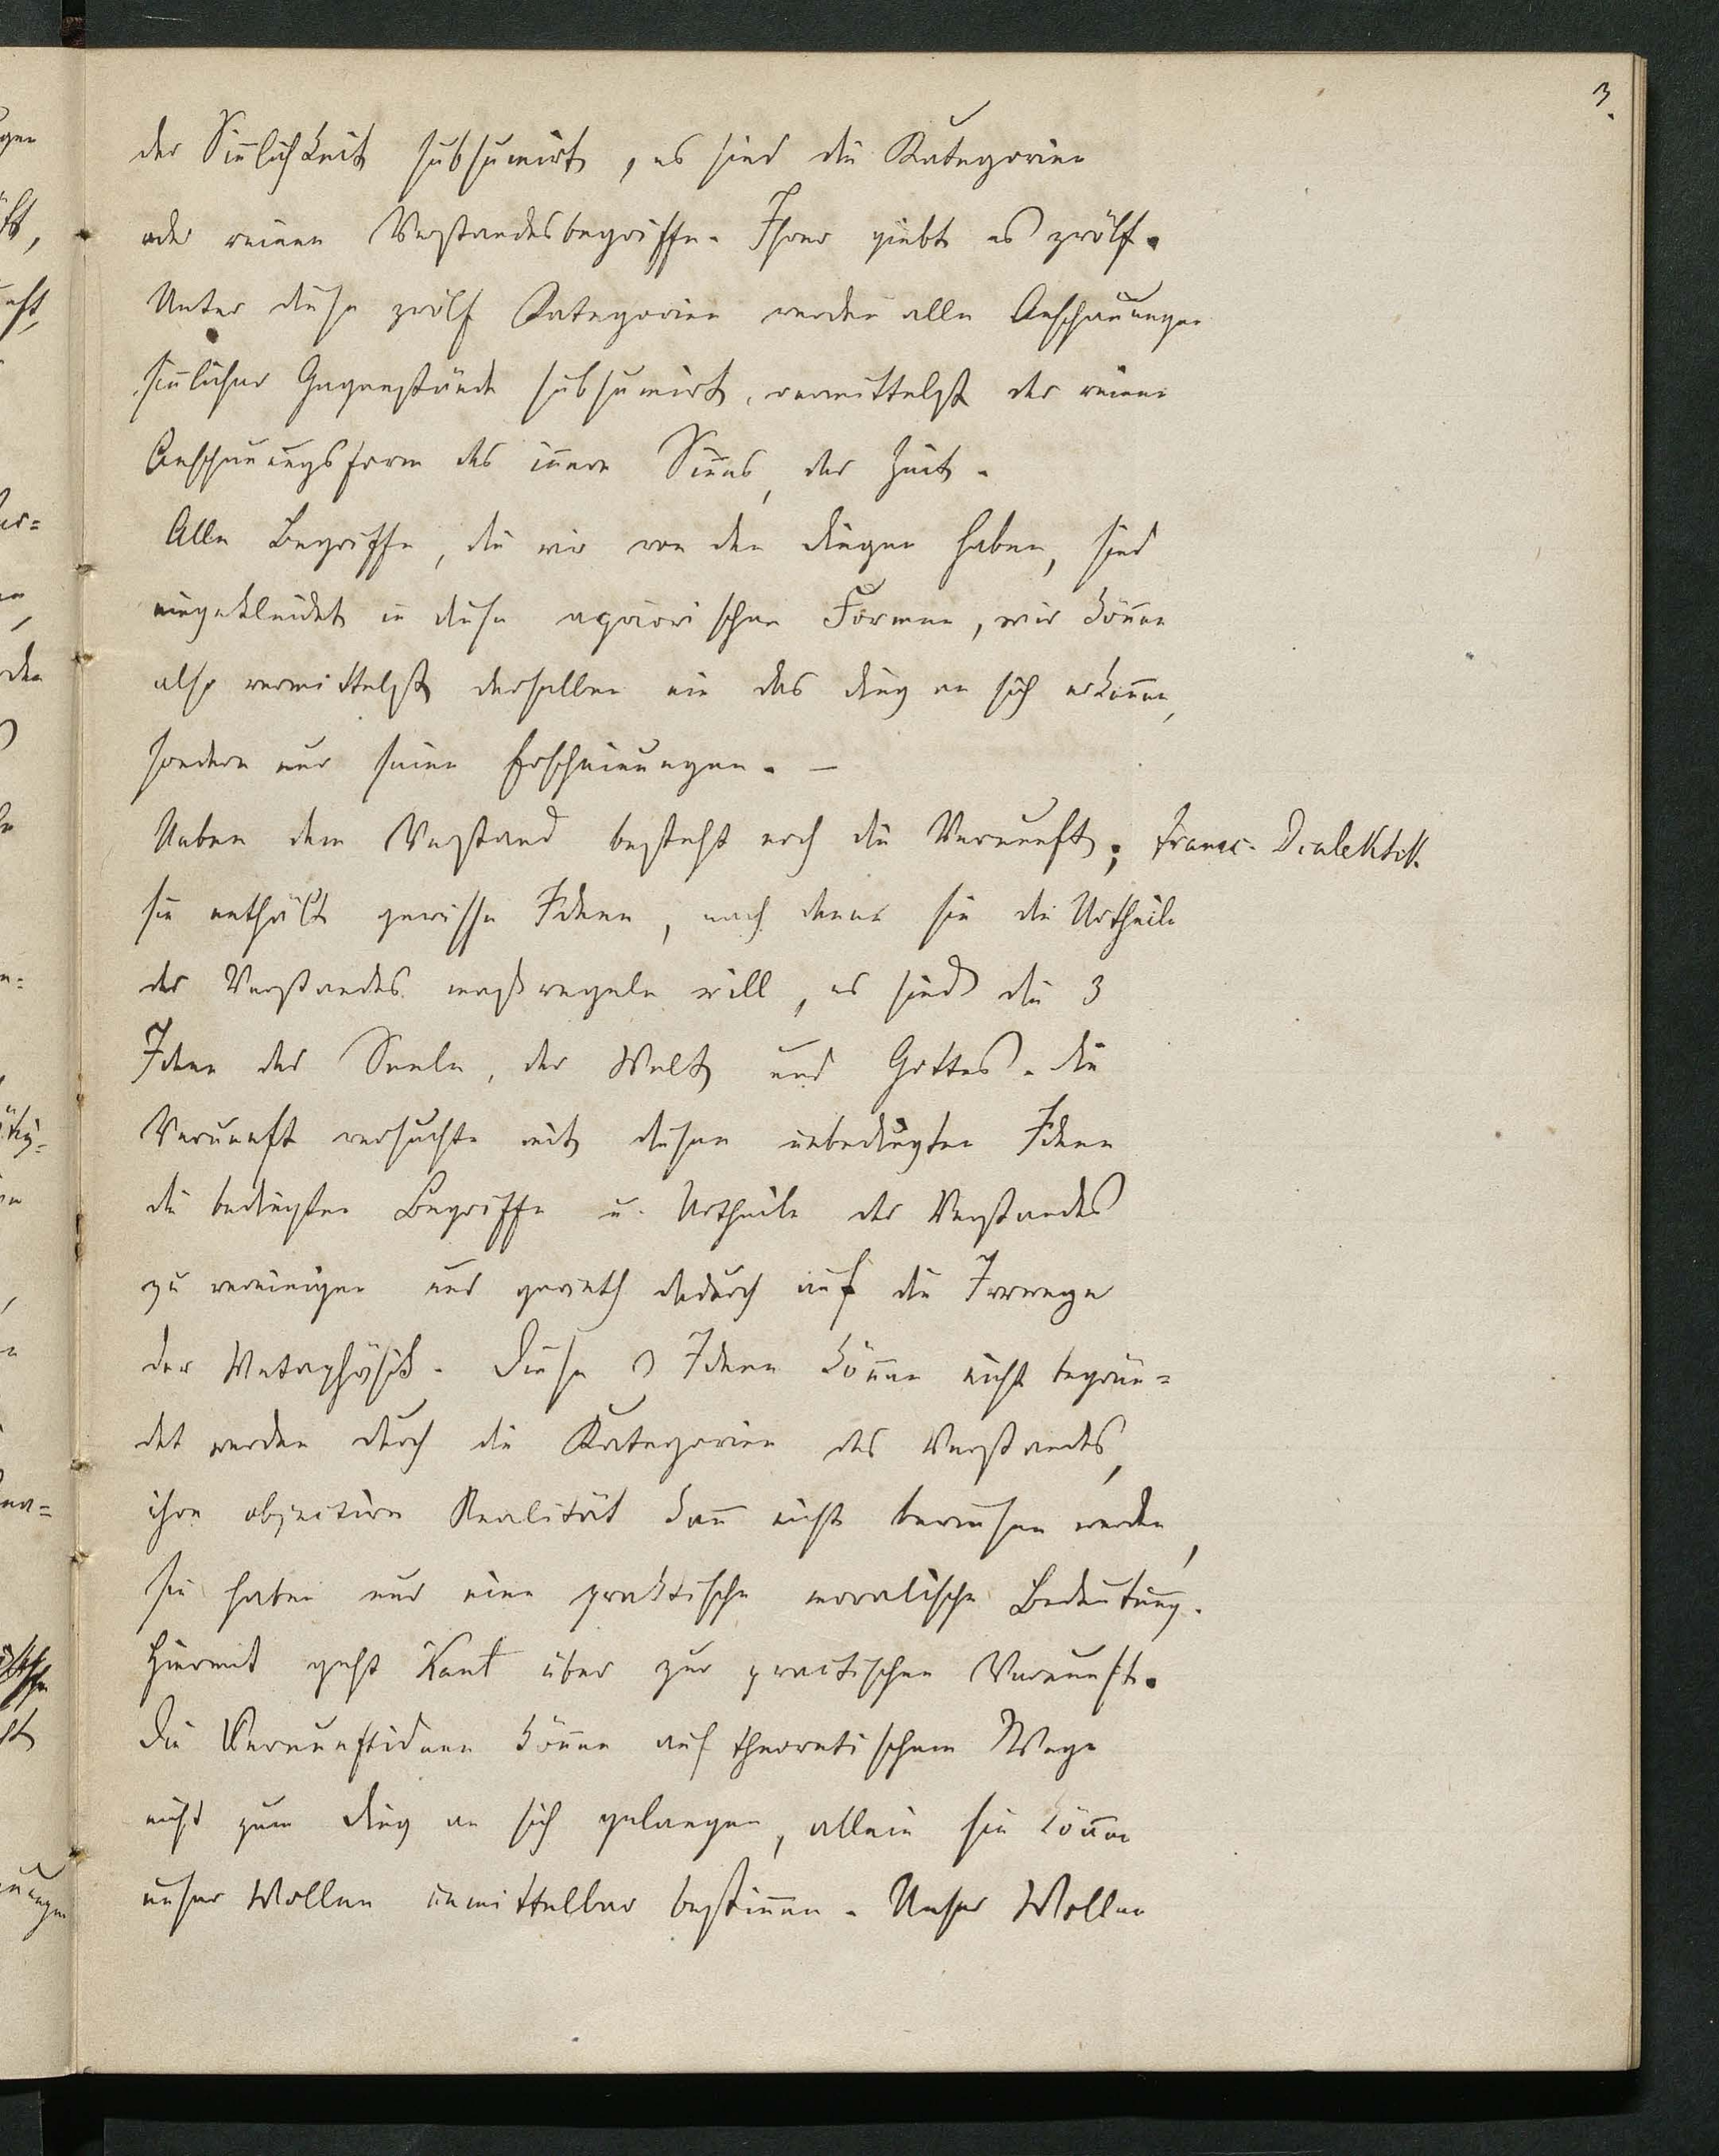 3.
der Siñlichkeit subsumirt, es sind die Kategorien
oder reinen Verstandesbegriffe. Ihrer giebt es zwölf.
Unter diese zwölf Kategorien werden alle Anschauungen
siñlicher Gegenstände subsumirt, vermittelst der reinen
Anschauungsform des iñern Siñes, der Zeit.
Alle Begriffe, die wir von den Dingen haben, sind
eingekleidet in diese apriorischen Formen, wir köñen
also vermittelst derselben nie das Ding an sich erkeñen,
sondern nur seine Erscheinungen. —
Neben dem Verstand besteht noch die Vernunft; transc. Dialektik
sie enthält gewisse Ideen, nach denen sie die Urtheile
des Verstandes maßregeln will, es sind die 3
Ideen der Seele, der Welt und Gottes. Die
Vernunft versucht mit diesen unbedingten Ideen
die bedingten Begriffe u. Urtheile des Verstandes
zu vereinigen und geräth dadurch auf die Irrwege
der Metaphÿsik. Diese 3 Ideen köñen nicht begrün=
det werden durch die Kategorien des Verstandes,
ihre objective Realität kañ nicht bewiesen werden,
sie haben nur eine praktische moralische Bedeutung.
Hiermit geht Kant über zur practischen Vernunft.
Die Vernunftideen köñen auf theoretischem Wege
nicht zum Ding an sich gelangen, allein sie köñen
unser Wollen unmittelbar bestim̄en. Unser Wollen